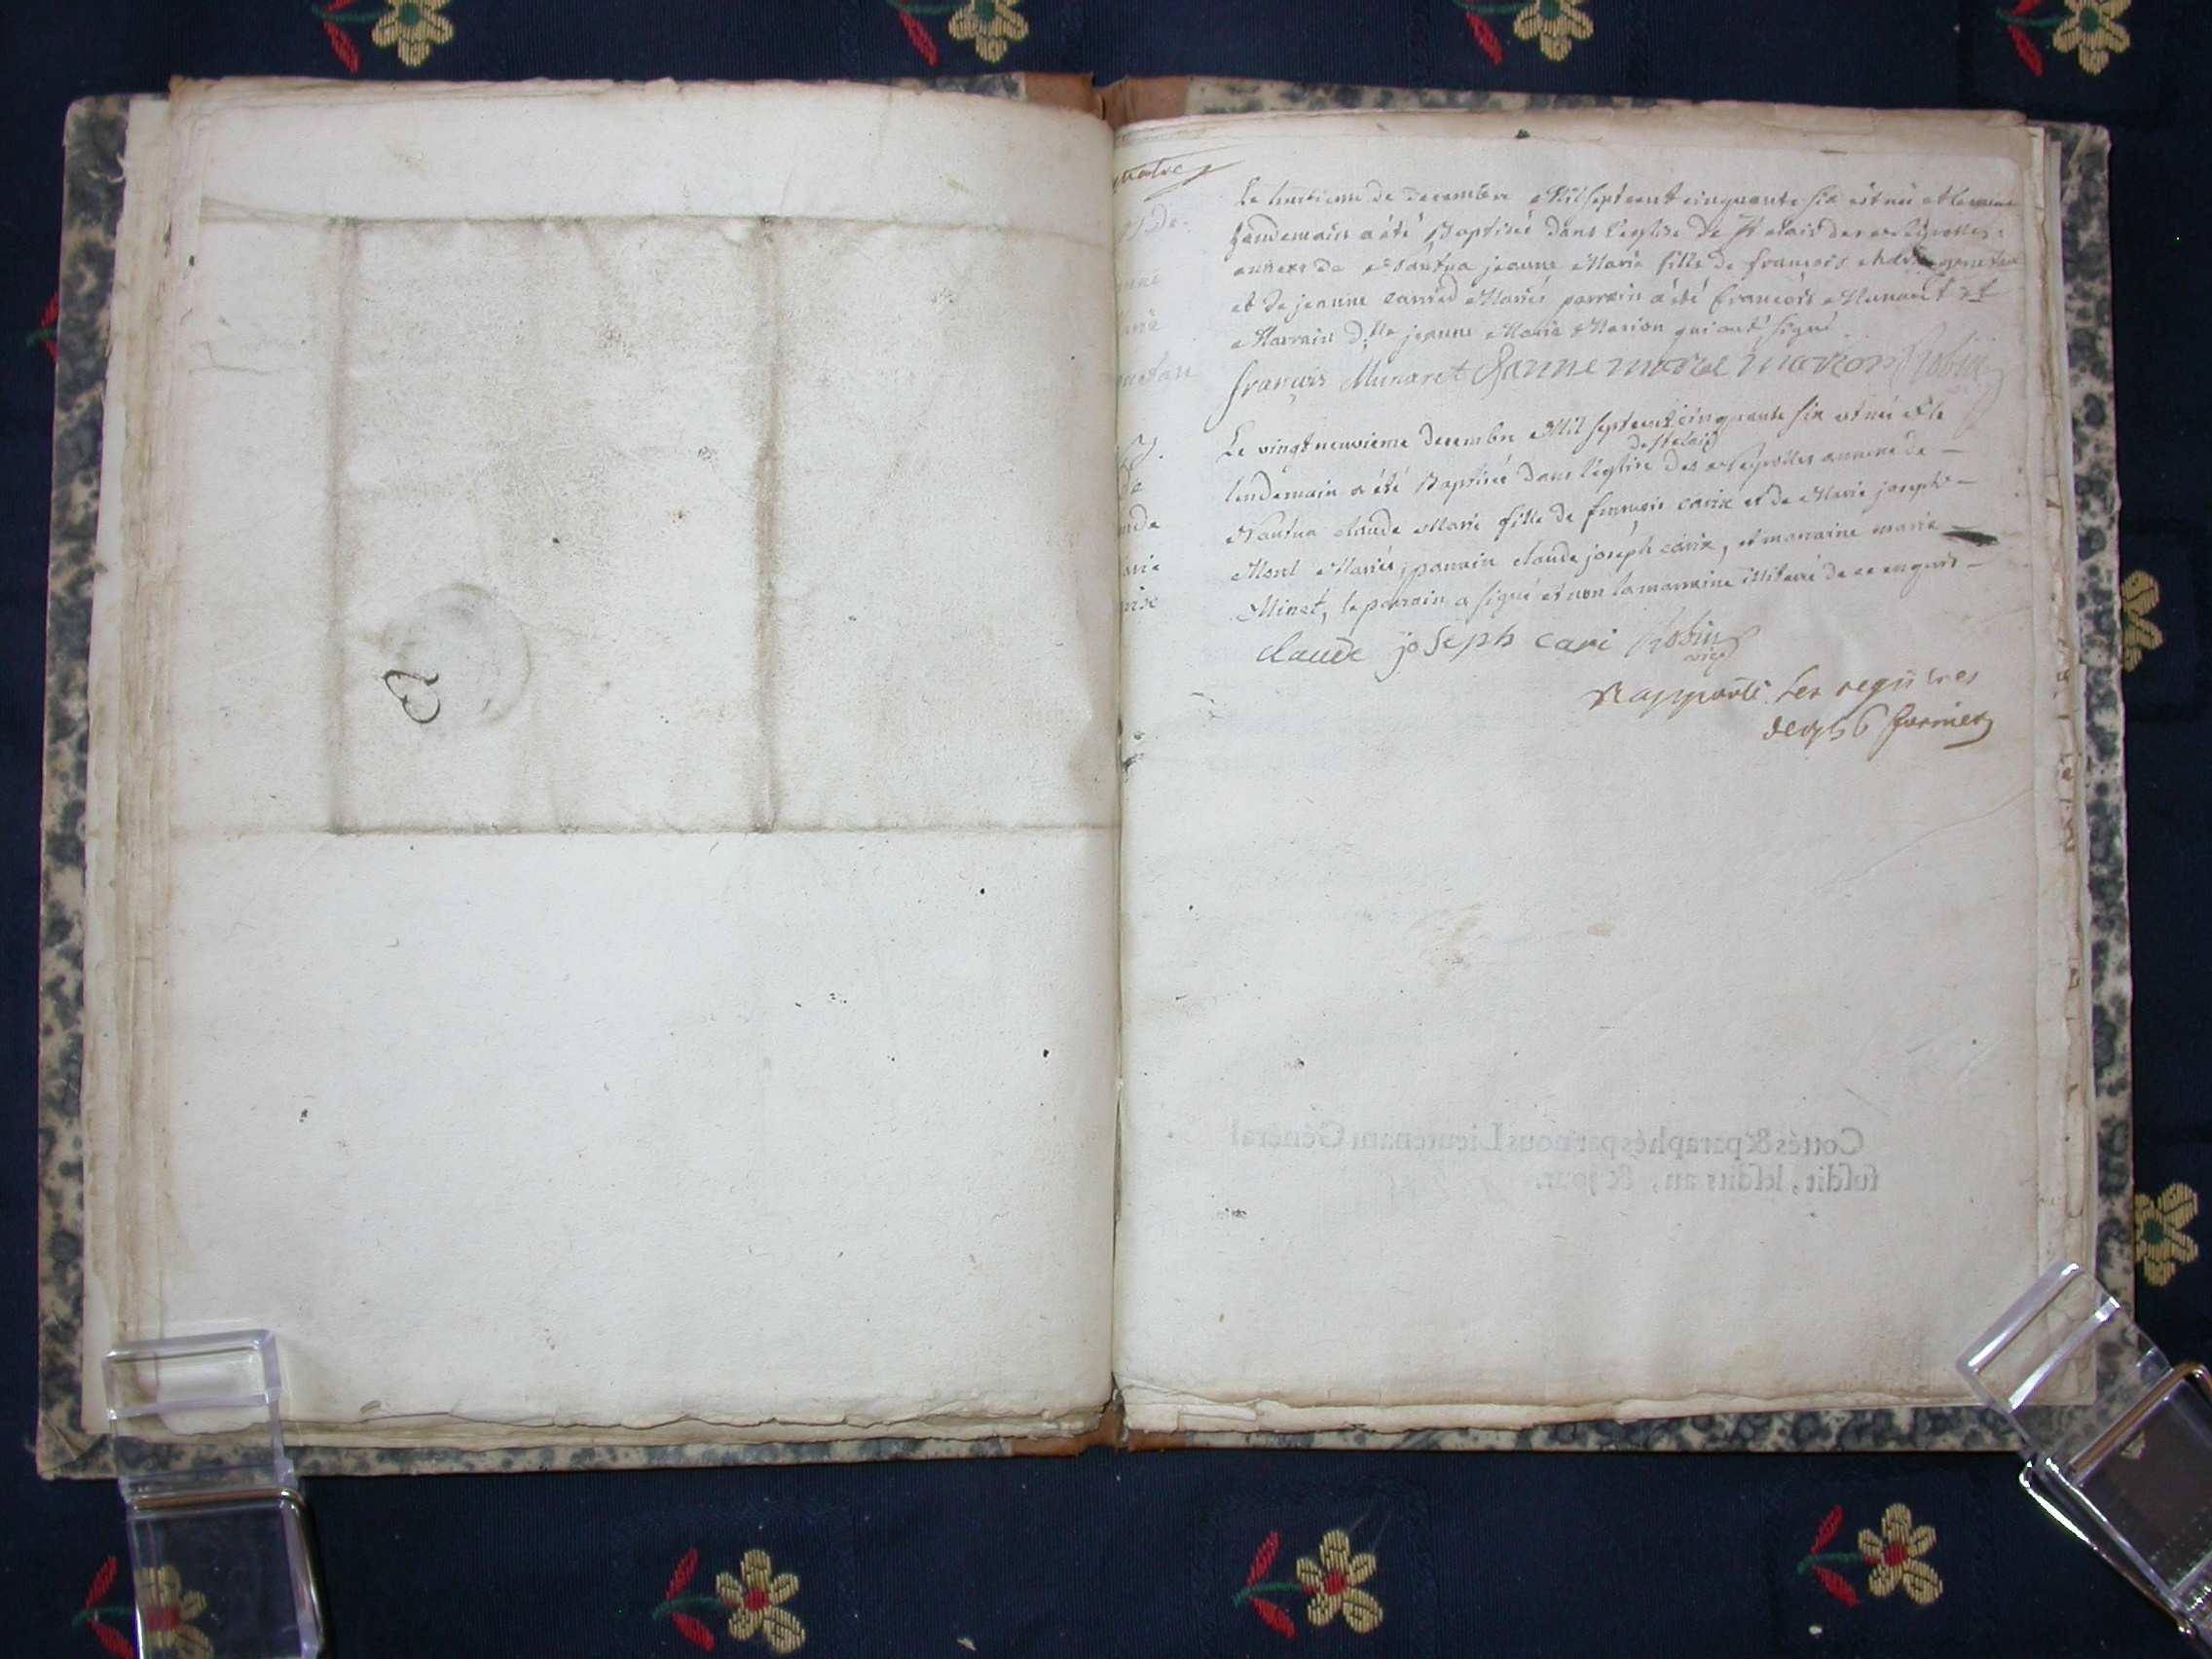 quatre
Le huitieme de decembre Mil sept cent cinquante six est née et le même
Lendemain a été Baptisée dans l'eglise de St alaid des Neyrolles
annexe de Nantua jeanne Marie fille de françois
et de jeanne carried Mariés parrain a été françois Munaret et
Marrain dlle jeanne Marie Marion qui ont signé
françois Munaret Janne marie marion Robin
Le vingt neuvieme decembre Mil sept cent cinquante six est née et le
de st alaid
lendemain a été Baptisée dans l'église des Neyrolles annexe de
Nantua claude Marie fille de françois carix et de Marie josephe
Mont Mariés, parrain claude joseph carix, et marraine marie
Minet, le parrain a signé et non la marraine illiterée de ce enquis
claude joseph cari Robin
vice
Rapporté Les regitres
de 1756 fornier
nde
arie
Cottés & paraphés par nous Lieutenant Général
susdit, lesdits an, & jour.